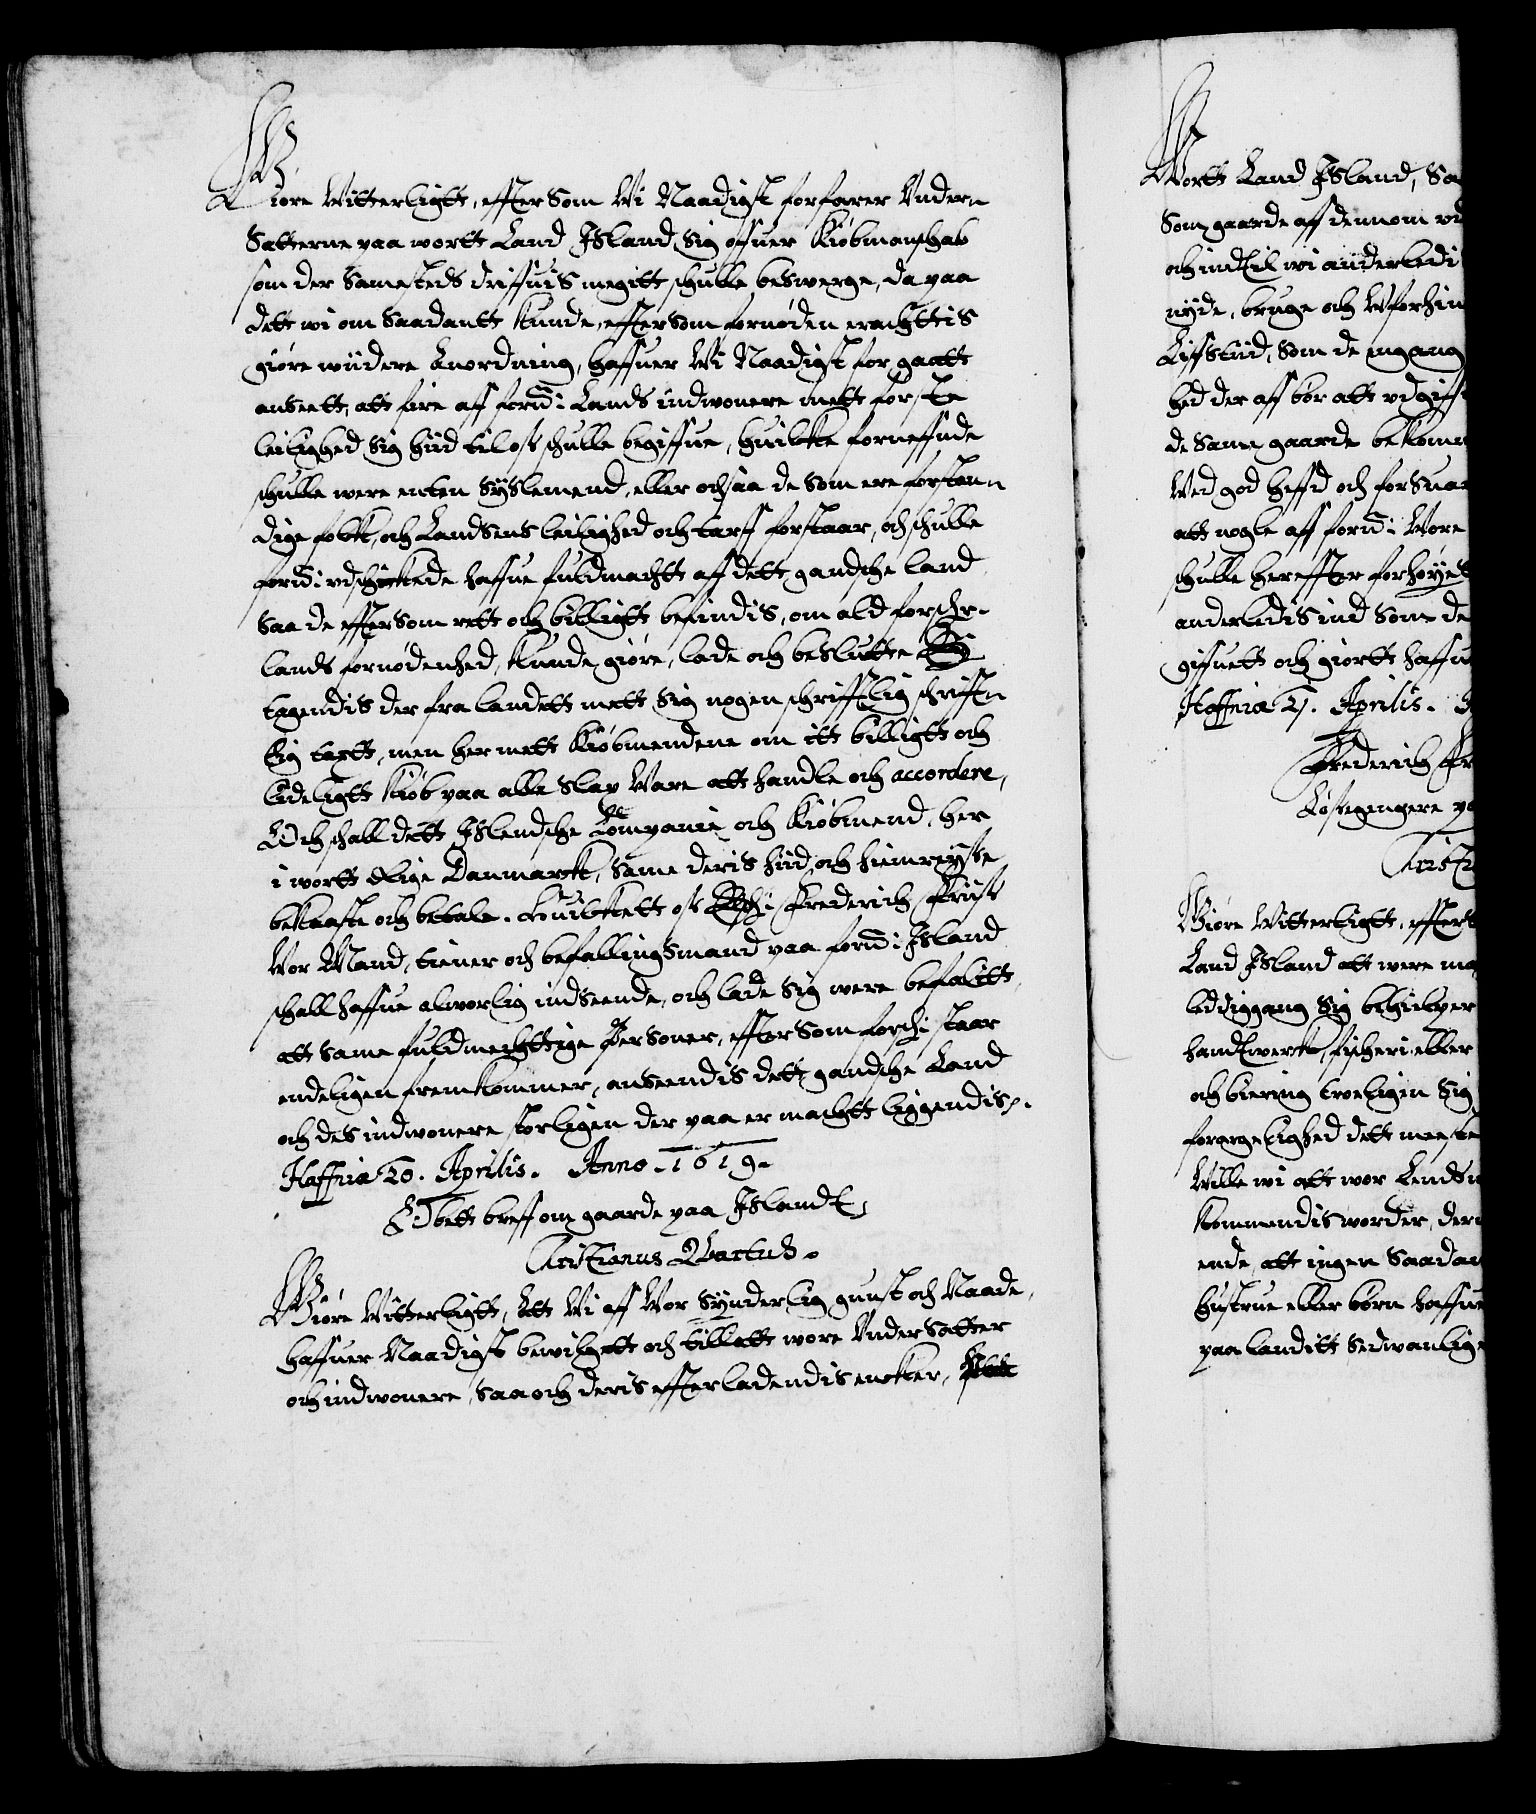 Giøre Witterligtt, effter Som Wi Naadigst forfarer Vnder-
Satterne paa wortt Land Jsland, Sig offuer Kiøbmanschab
som der Samesteds driffuis megitt schulle beswerge, da paa
dett wi om Saadantt kunde, effter Som fornøden erachttis
giøre wiidere Anordning, haffuer Wi Naadigst for gaatt
anseett, att fire aff ford: Lands indwonere mett forste
leilighed Sig hiid til oss schulle begiffue, huilcke forneffnde
schulle were enten Syslemend, eller och saa de Som ere forstan-
dige folck, och Landsens leilighed och tarff forstaar, och schulle
ford: vdschickede haffue fuldmachtt aff dett gandsche land
Saa de effter Som rett och billigtt befindis, om ald forschr:
lands fornødenhed, kunde giøre, lade och beslutte
tagendis der fra landett mett Sig nogen schrifftlig schrifft-
lig tartt, men her mett Kiøbmendene om itt billigtt och
lideligtt kiøb paa alle Slag Ware att handle och accordere,
Och schall dett Jslendsche Companie och Kiøbmend, her
i wortt Rige Danmarck, Same deris hiid och hiemreysse
bekaaste och betale. Huilckett oss Elsch: Frederich Friis
Wor Mand, tiener och befallingsmand paa ford: Jsland
schall haffue alworlig indseende, och lade Sig were befalitt,
att Same fuldmechttige Personer, effter Som forschr: staar
endeligen fremkommer, anseendis dett gandsche Land
och des indwonere storligen der paa er machtt liggendis.
Haffnia 20. Aprilis. Anno 1619.
Obett breff om gaarde paa Jsland
Cristianus Quartus.
Giøre Witterligtt, Att Wi aff Wor Synderlig gunst och Naade,
haffuer Naadigst bewilgett och tillatt wore Vndersatter
och indwonere, Saa och deris effterladendis encker,
Wortt Land Jsland, Sa
Som gaarde aff dennom vd
och indtil wi anderledi
nyde, bruge och Wforhin
Liffstiid, Som de engang
hed der aff bør att vdgiff
de Same gaarde bekom
Wed god heffd och forsua
att nogle aff ford: Wore
schulle her effter forhøyes
anderledis ind Som de
giffuett och giortt haffu
Haffnia 2j. Aprilis.
Frederich Fr
Løssgengere pa
Crist
Giøre Witterligtt, effter
Land Jsland att were ma
leddiggang Sig behielper
handtwerk, fischeri eller
och biering troeligen Sig
forargelighed dett meeste
Wille wi att wor Lends
kommendis worder, der
ende, att ingen Saada
hustrue eller børn haffue
paa landitt Sedwanlige